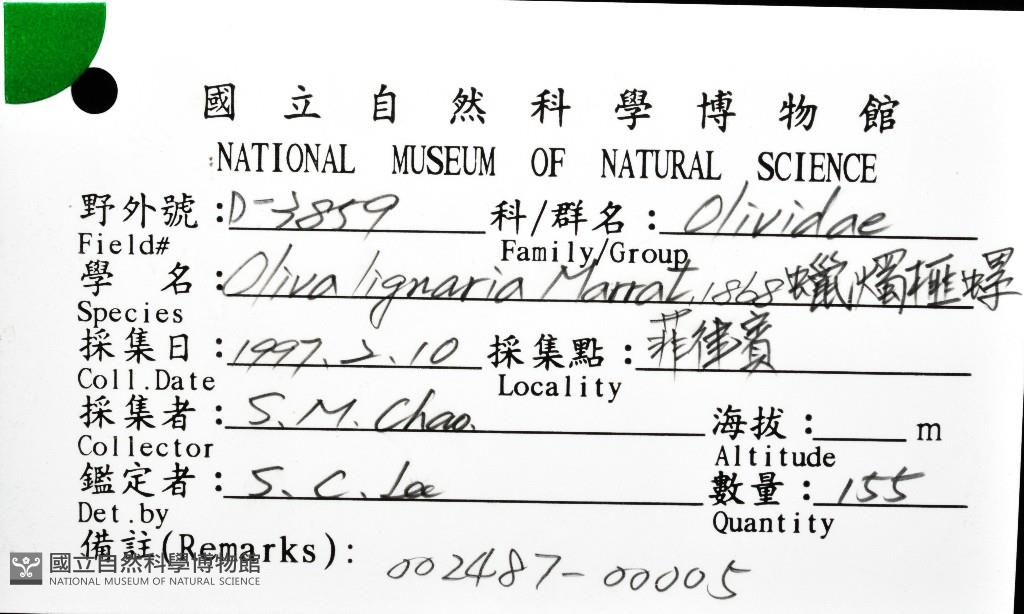 國立自然科學博物館
NATIONAL MUSEUM OF NATURAL SCIENCE
野外號：D-3859 科/群名：Olividae
Field# Family/Group
學 名：Oliva lignaria Marrat, 1868 蠟燭榧螺
Species
採集日：1997.2.10 採集點：菲律賓
Coll.Date Locality
採集者：S. M. Chao. 海拔：____ m
Collector Altitude
鑑定者：S. C. Lee 數量：155
Det.by Quantity
備註(Remarks)： 002487-00005
國立自然科學博物館
NATIONAL MUSEUM OF NATURAL SCIENCE